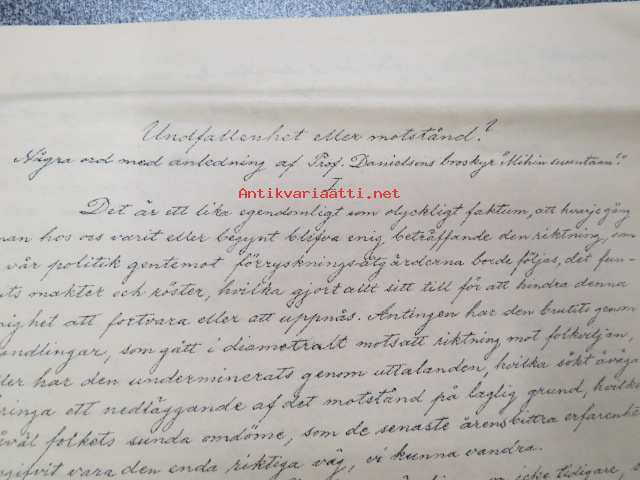 Undfallenhet eller motstånd?
Några ord med anledning af Prof. Danielsons broskyr "Mihin suuntaan?"
I
Antikvariaatti.net
Det är ett lika egendomligt som olyckligt faktum, att hvarje gång
man hos oss varit eller begynt blifva enig beträffande den riktning, som
vår politik gentemot förryskningsåtgärderna borde följas, det fun-
its makter och röster, hvilka gjort allt sitt till för att hindra denna
nighet att fortvara eller att uppnås. Antingen har den brutits genom
andlingar, som gått i diametralt motsatt riktning mot folkviljan,
ller har den underminerats genom uttalanden, hvilka sökt åväga
ringa ett nedläggande af det motstånd på laglig grund, hvilke
åväl folkets sunda omdöme, som de senaste årens bittra erfarenhe
ngifvit vara den enda riktiga väg, vi kunna vandra.
icke tidigare, s